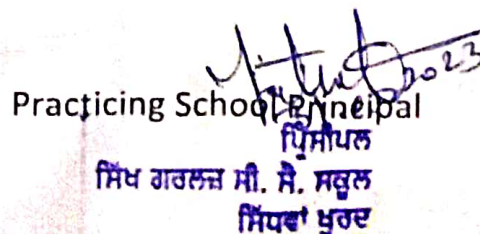 2023
Practicing School Principal
ਪ੍ਰਿੰਸੀਪਲ
ਸਿੱਖ ਗਰਲਜ਼ ਸੀ. ਸੈ. ਸਕੂਲ
ਸਿੱਧਵਾਂ ਖੁਰਦ